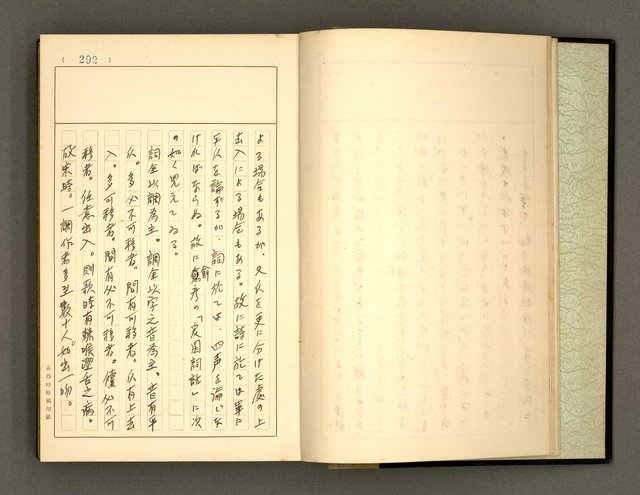 ( 292 )
よる場合もあるが、又仄を更に分けた處の上
去入による場合もある。故に詩に於ては單に
平仄を論ずるが、詞に於ては、四声を論じな
ければならぬ。故に俞彥の「爰園詞話」に次
の如く見えてゐる。
詞全以調為主。調全以字之音為主。音有平
仄。多必不可移者。間有可移者。仄有上去
入。多可移者。間有必不可移者。儻必不可
移者。任意出入。則歌時有棘喉澀舌之病。
故宋時。一調作者多至數十人。如出一吻。
長得時原稿用紙